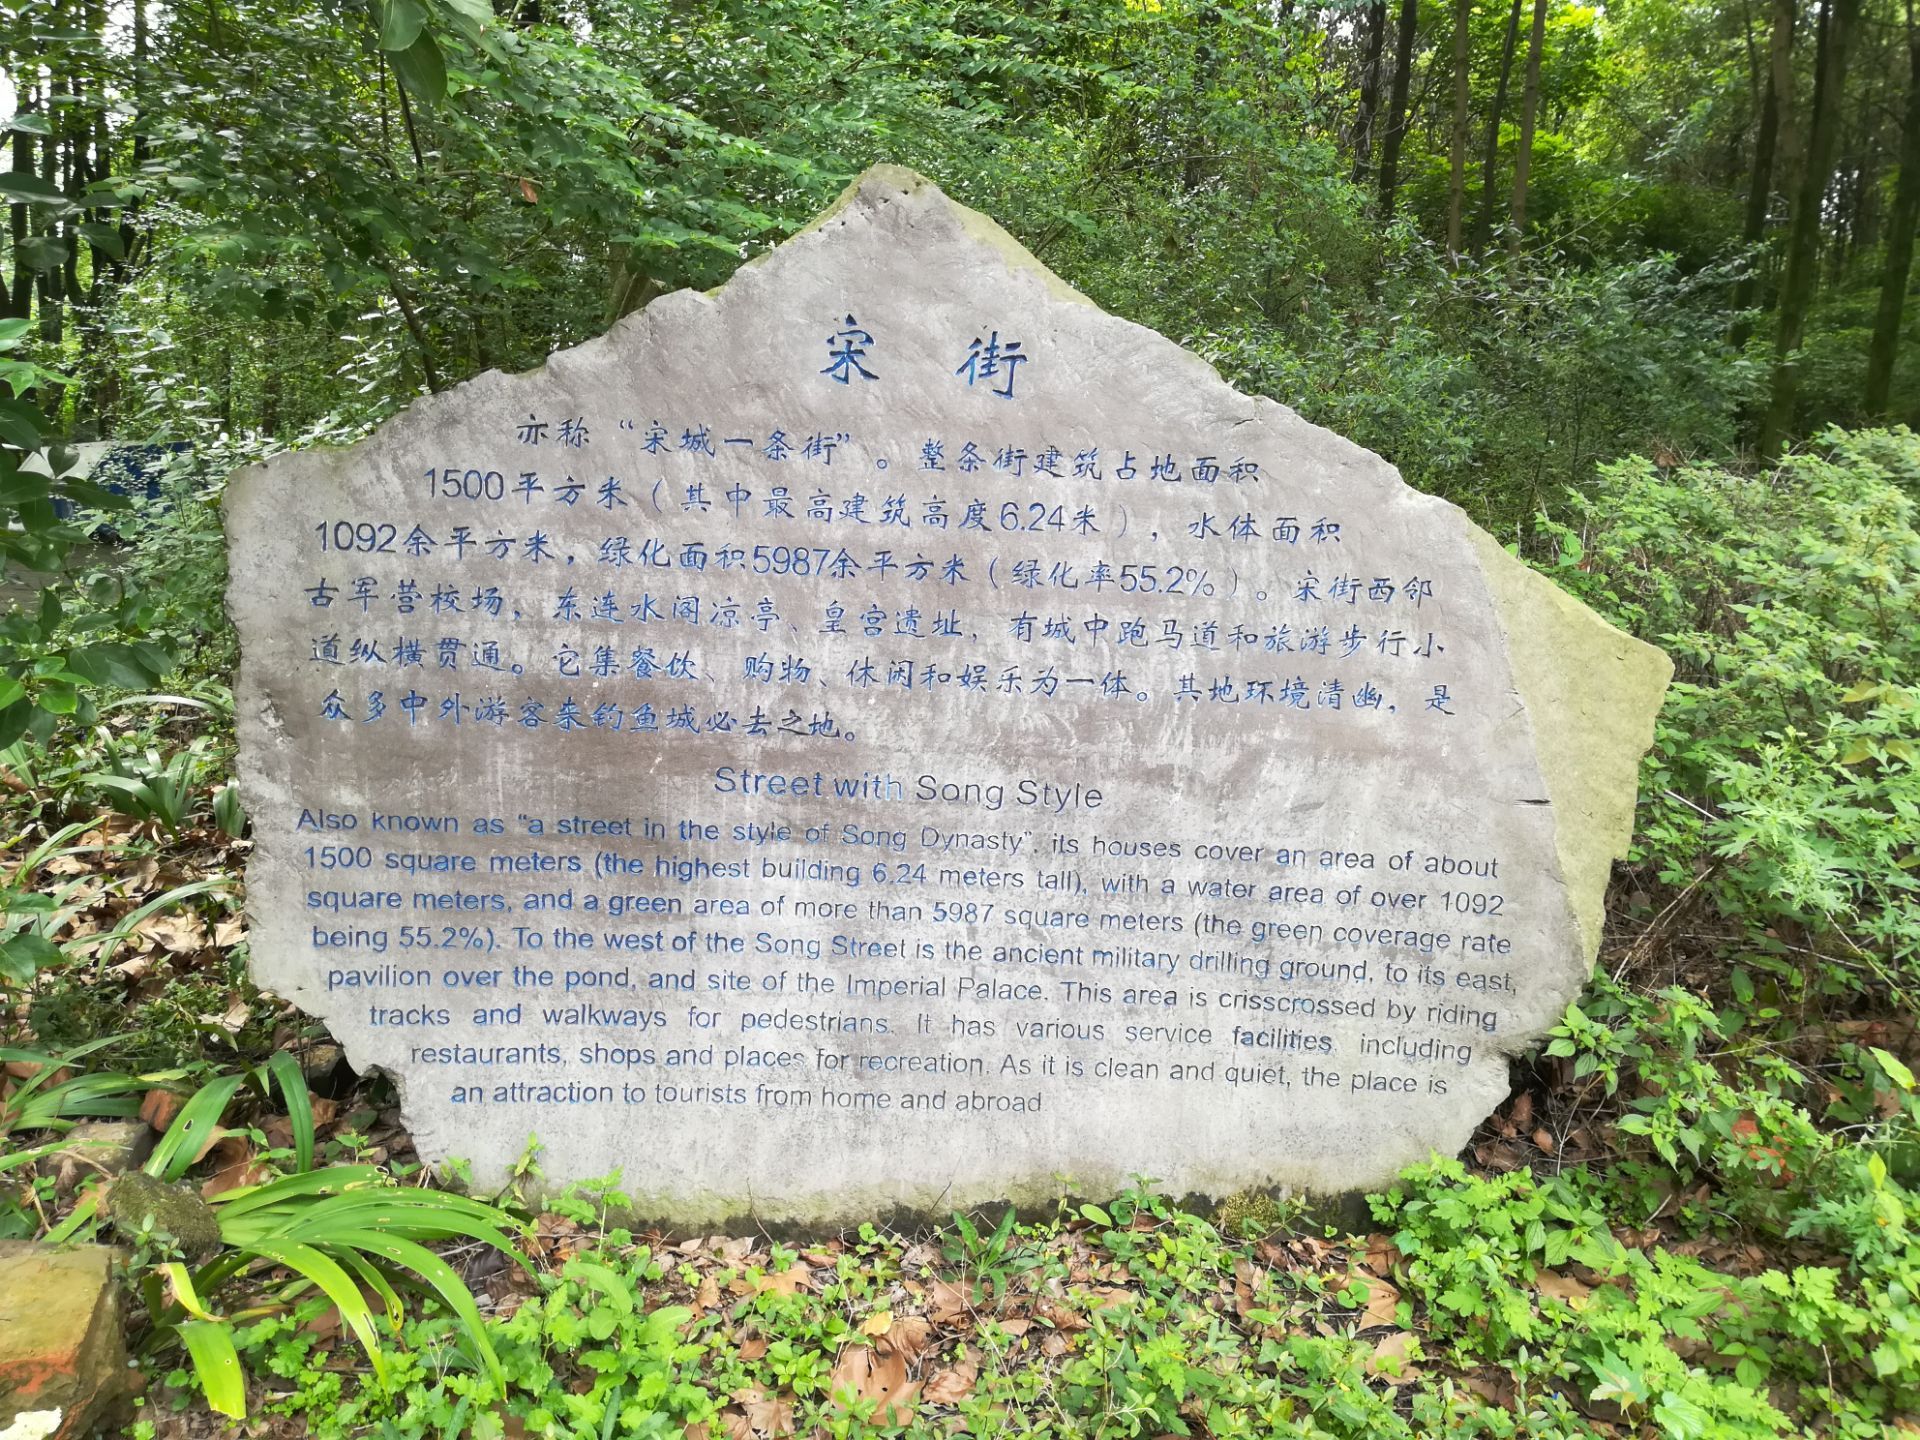 宋街
亦称“宋城一条街”。整条街建筑占地面积
1500平方米（其中最高建筑高度6.24米），水体面积
1092余平方米，绿化面积5987余平方米（绿化率55.2%）。宋街西邻
古军营校场，东连水阁凉亭、皇宫遗址，有城中跑马道和旅游步行小
道纵横贯通。它集餐饮、购物、休闲和娱乐为一体。其地环境清幽，是
众多中外游客来钓鱼城必去之地。
Street with Song Style
Also known as “a street in the style of Song Dynasty”, its houses cover an area of about
1500 square meters (the highest building 6.24 meters tall), with a water area of over 1092
square meters, and a green area of more than 5987 square meters (the green coverage rate
being 55.2%). To the west of the Song Street is the ancient military drilling ground, to its east,
pavilion over the pond, and site of the Imperial Palace. This area is crisscrossed by riding
tracks and walkways for pedestrians. It has various service facilities, including
restaurants, shops and places for recreation. As it is clean and quiet, the place is
an attraction to tourists from home and abroad